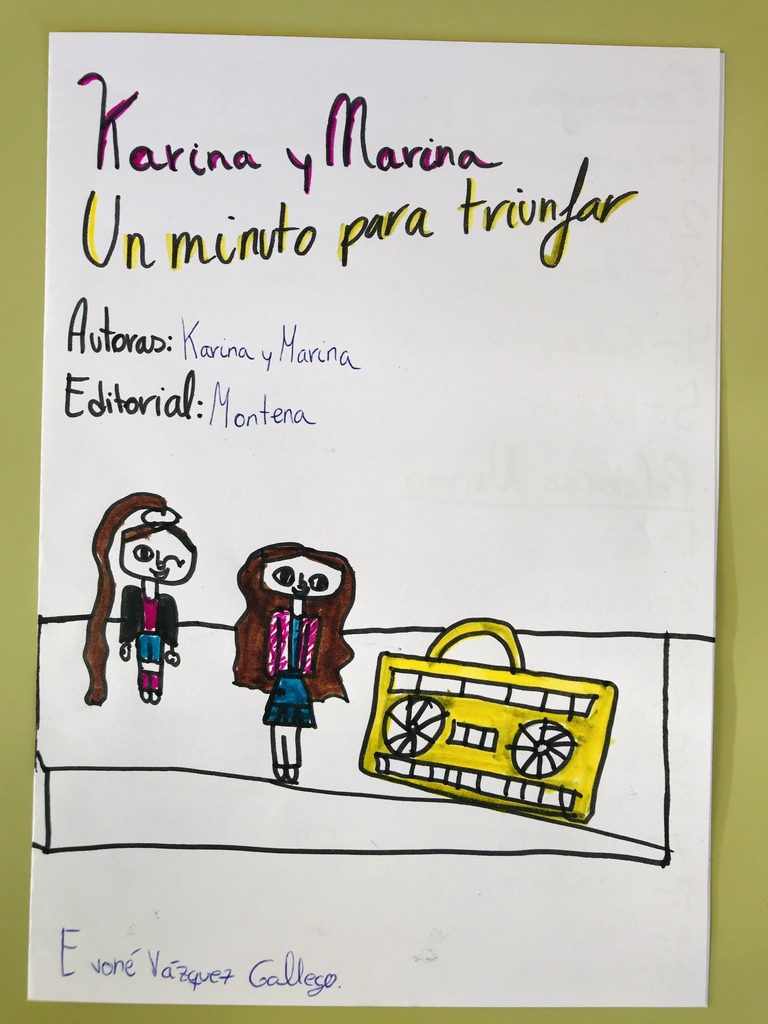 Karina y Marina
Un minuto para triunfar
Autoras: Karina y Marina
Editorial: Montena
Evoné Vázquez Gallego.